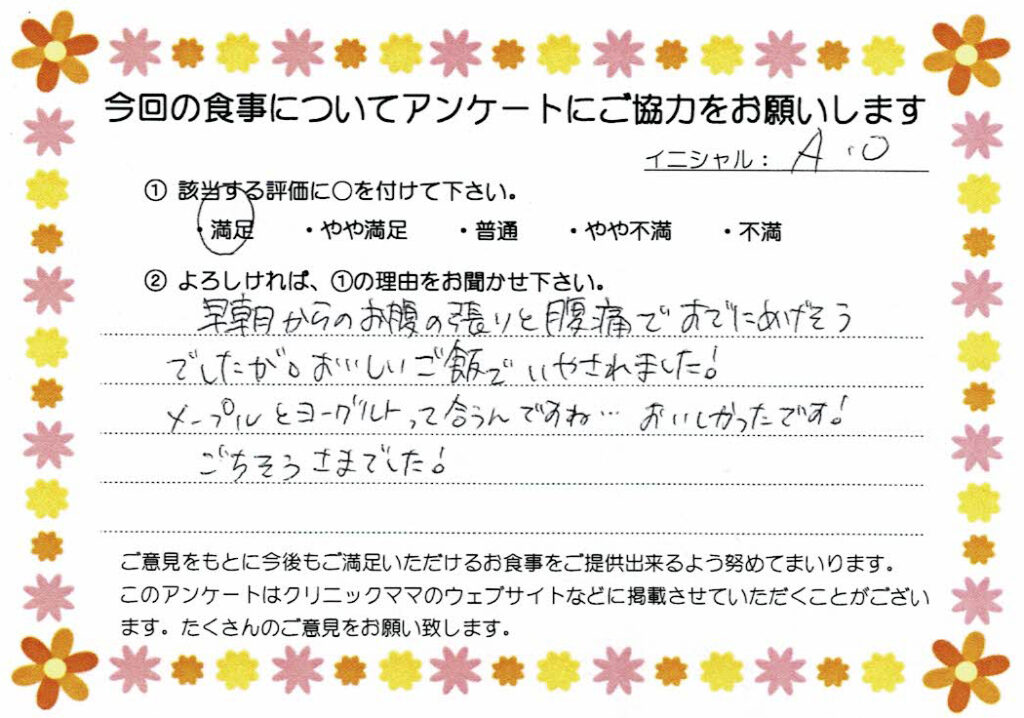 今回の食事についてアンケートにご協力をお願いします
イニシャル： A.O
① 該当する評価に○を付けて下さい。
・満足 ・やや満足 ・普通 ・やや不満 ・不満
② よろしければ、①の理由をお聞かせ下さい。
早朝からのお腹の張りと腹痛で
でしたが。おいしいご飯でいやされました!
メープルとヨーグルトって合うんですね… おいしかったです!
ごちそうさまでした!
ご意見をもとに今後もご満足いただけるお食事をご提供出来るよう努めてまいります。
このアンケートはクリニックママのウェブサイトなどに掲載させていただくことがござい
ます。たくさんのご意見をお願い致します。